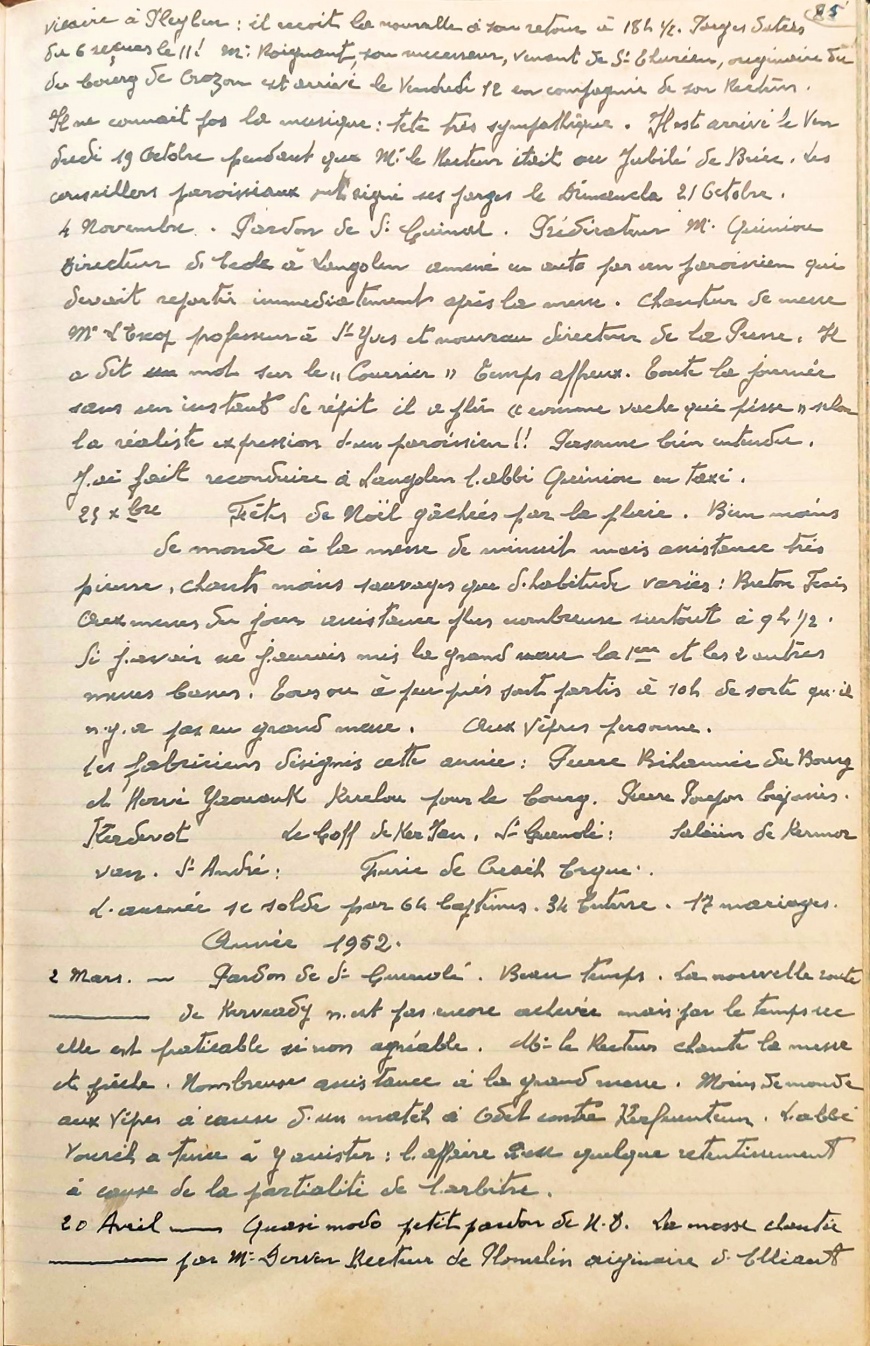 85
vicaire à Pleyben : il reçoit la nouvelle à son retour à 18h 1/2. datés
du 6 reçues le 11! Mr. Roignant, son successeur, venant de St Thurien, originaire du
du bourg de Crozon est arrivé le Vendredi 12 en compagnie de son Recteur.
Il ne connait pas la musique : tête très sympathique. Il est arrivé le Ven
dredi 19 Octobre pendant que Mr le Recteur était au Jubilé de Briec. Les
conseillers paroissiaux ont signé ses le Dimanche 21 Octobre.
4 Novembre. Pardon de St Guénolé. Prédicateur Mr. Quiniou
Directeur d'Ecole à Langolen amené en auto par un paroissien qui
devait repartir immédiatement après la messe. Chanteur de messe
Mr L'Escop professeur à St Yves et nouveau directeur de la Presse. Il
a dit un mot sur le "Courrier" Temps affreux. Toute la journée
sans un instant de répit il a plu "comme vache qui pisse" selon
la réaliste expression d'un paroissien!! Personne bien entendu.
J'ai fait reconduire à Langolen l'abbé Quiniou en taxi.
25 xbre Fêtes de Noël gâchées par la pluie. Bien moins
de monde à la messe de minuit mais assistance très
pieuse, chants moins sauvages que d'habitude variés : Breton Frais
Aux messes du jour assistance plus nombreuse surtout à 9h 1/2.
Si j'avais su j'aurais mis la grand messe la 1ère et les 2 autres
messes basses. Tous ou à peu près sont partis à 10h de sorte qu'il
n'y a pas eu grand messe. Aux Vêpres personne.
Les fabriciens désignés cette année : Pierre Bihannic du Bourg
et Hervé Yaouank Kerelou pour le bourg. Pierre Poupon
Kerdevot Le Goff de Ker Jan. St Guénolé : Salaün de Kermor
van. St André : Furic de Creach Ergue.
L'année se solde par 64 baptêmes. 34 Enterre. 17 mariages.
Année 1952.
2 Mars. — Pardon de St Guénolé. Beau temps. La nouvelle route
de Kerveady n'est pas encore achevée mais par le temps sec
elle est praticable sinon agréable. Mr le Recteur chante la messe
et prêche. Nombreuse assistance à la grand messe. Moins de monde
aux Vêpres à cause d'un match à Odet contre Kerfeunteun. L'abbé
Vourch a tenu à y assister : l'affaire a eu quelque retentissement
à cause de la partialité de l'arbitre.
20 Avril — Quasimodo petit pardon de N.D. La messe chantée
par Mr Derven Recteur de Plomelin originaire d'Elliant